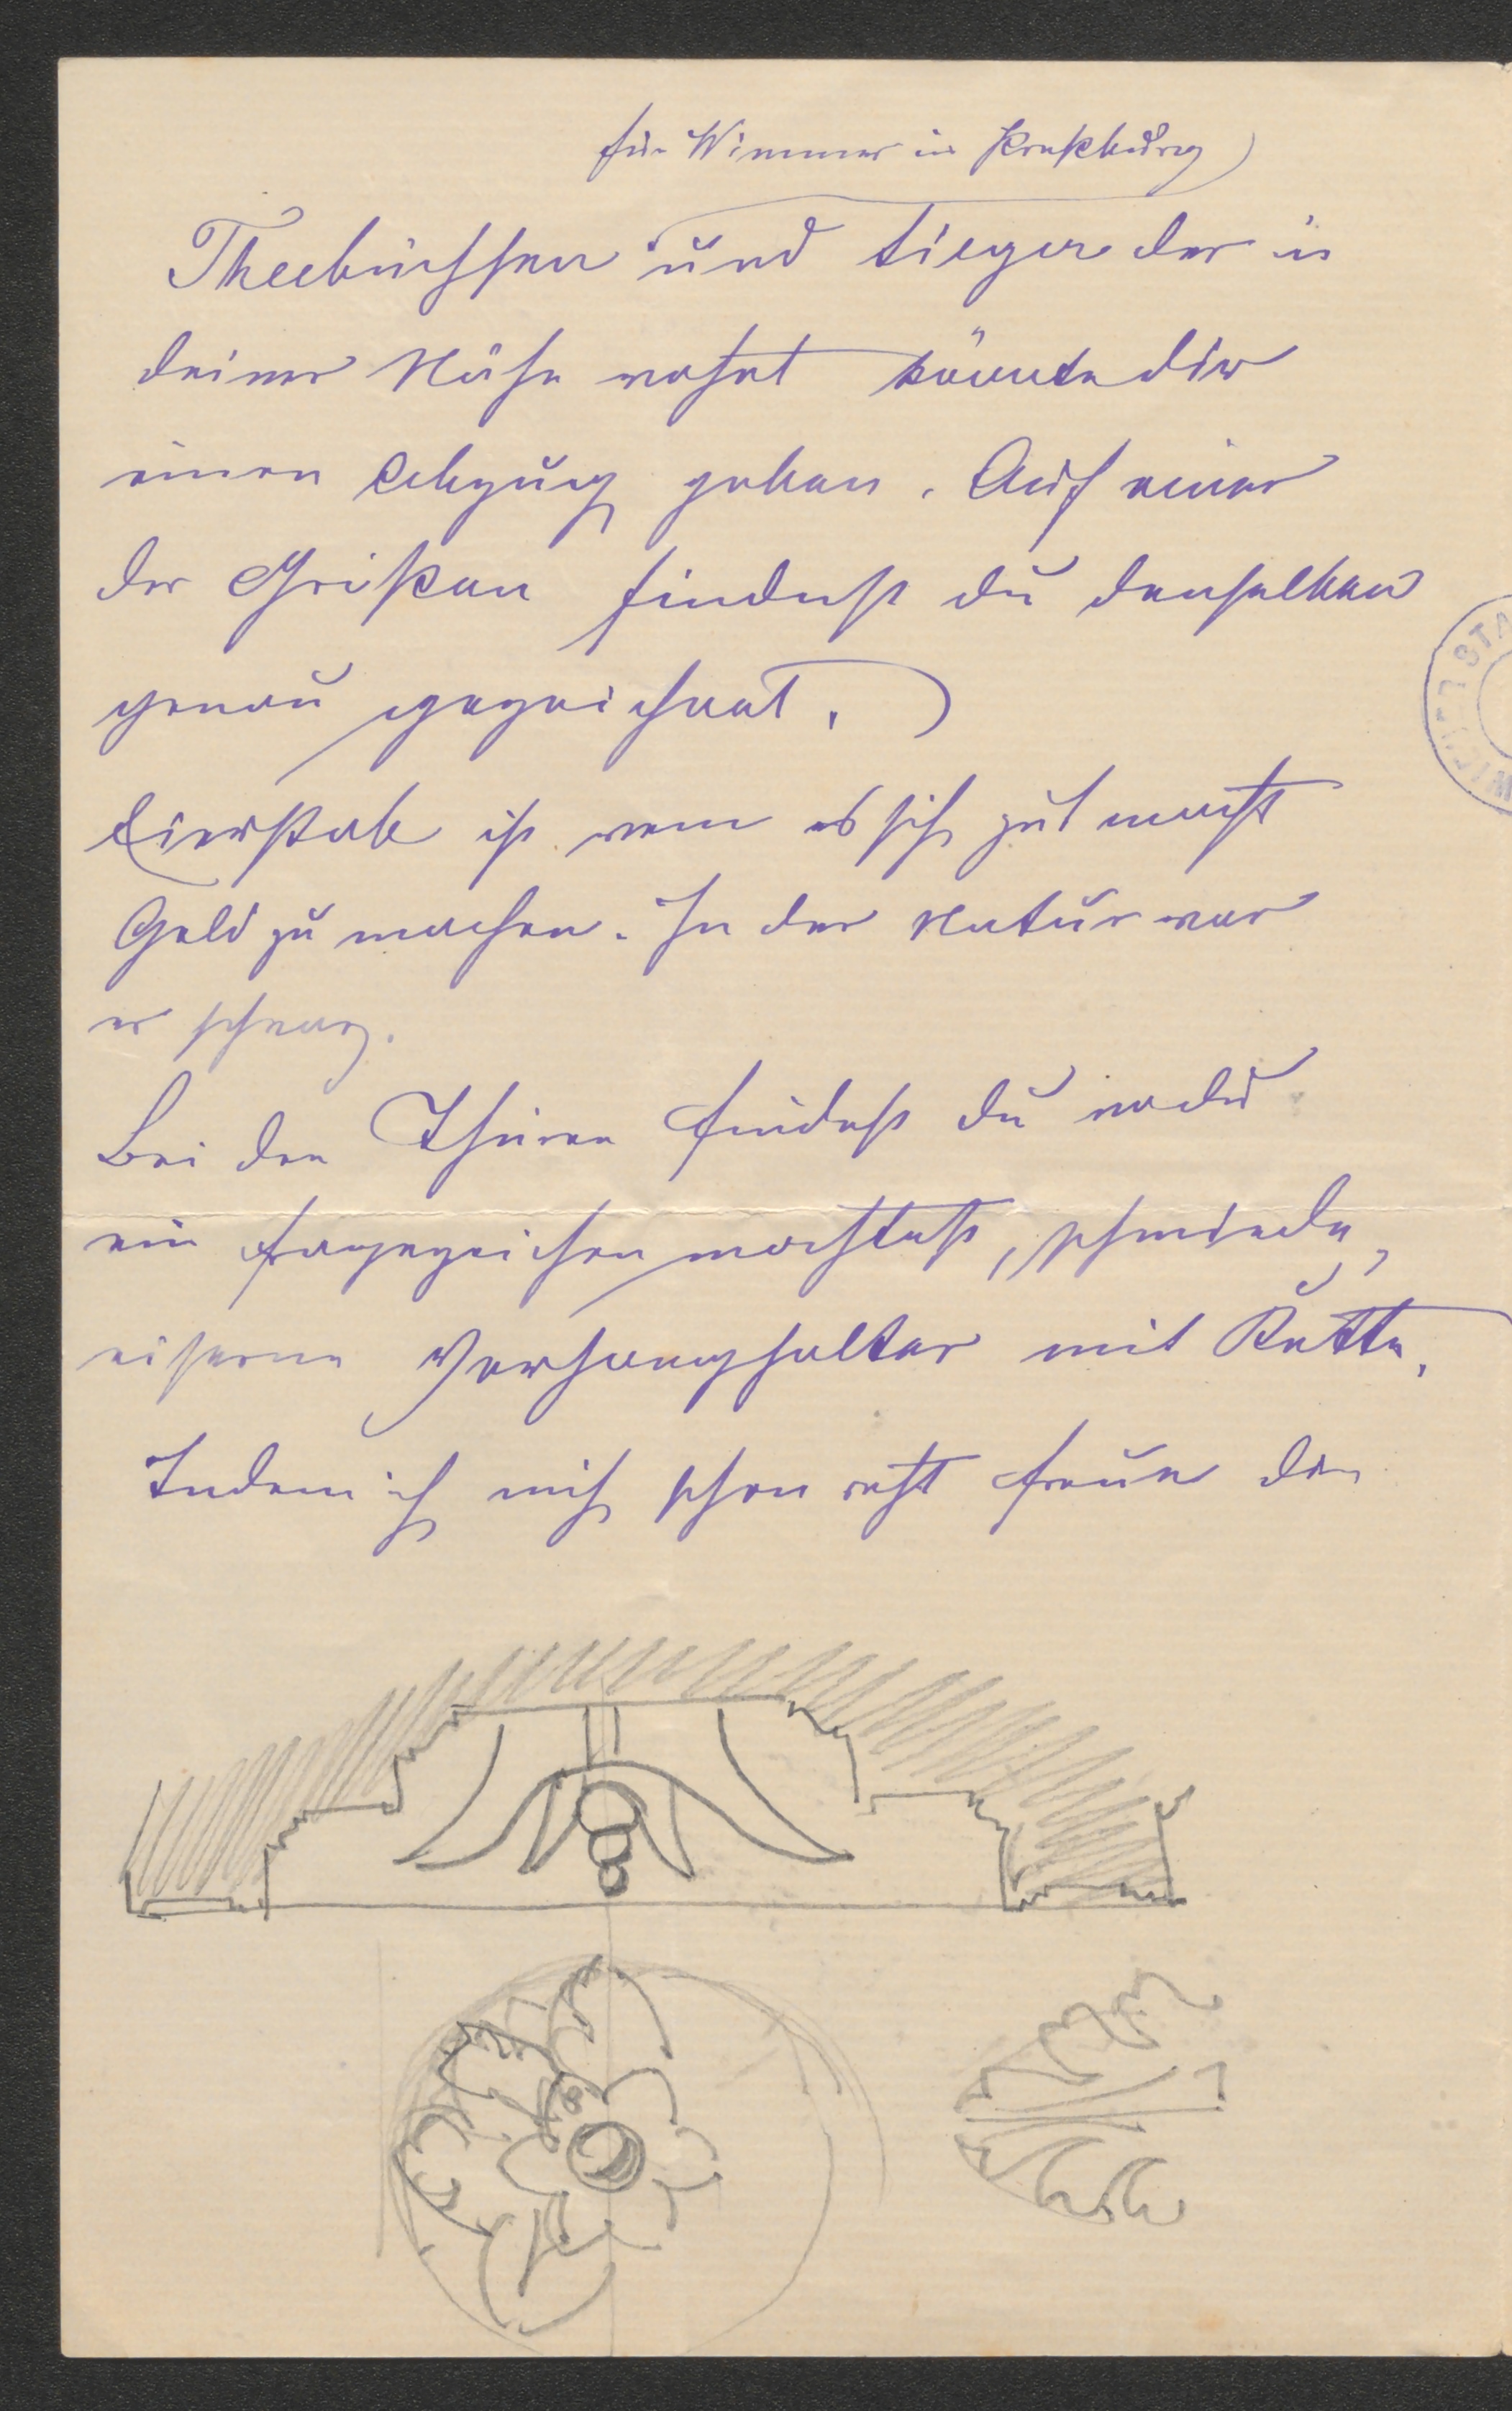 für Wimmer in Preßburg
Theebüchsen und Tieger der in
deiner Nähe wohnt könnte dir
einen Abzug geben. Auf einer
der Skitzen findest du denselben
genau gezeichnet.)
Eierstab ist wenn es sich gut macht
Gold zu machen. In der Natur war
er schwarz.
Bei den Thüren findest du wo du
ein Fragezeichen machtest, schmiede,
eiserne Vorhanghalter mit Kette.
Indem ich mich schon recht freue den
WIENER STA